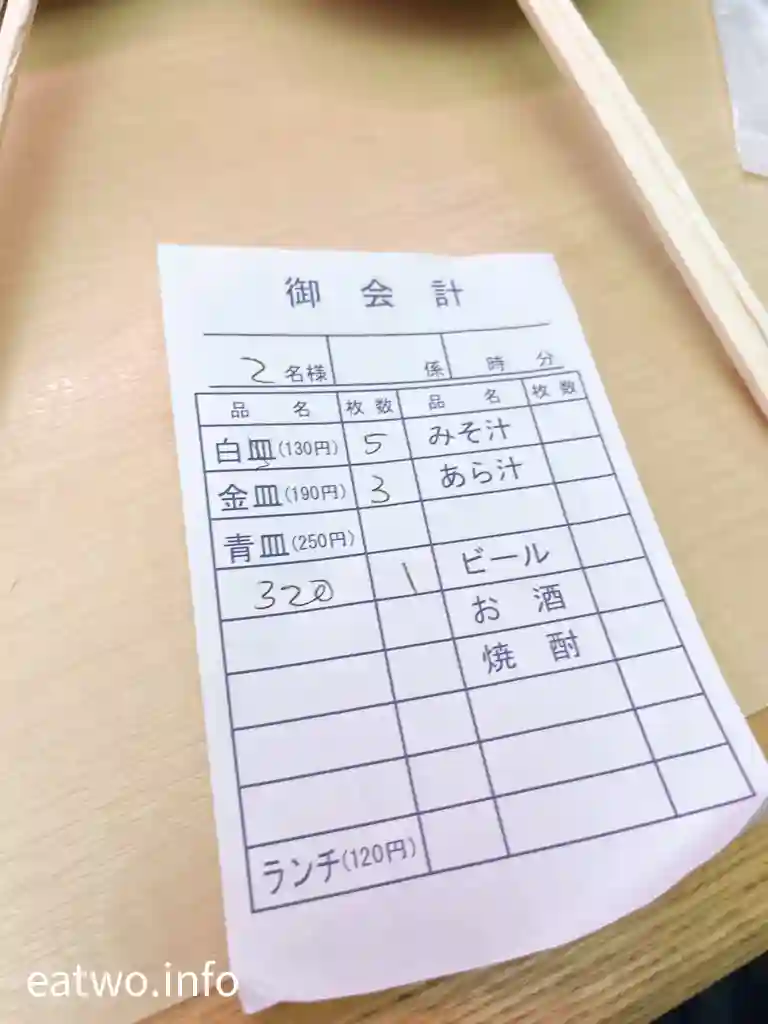 御 会 計
2 名様 係 時 分
品 名 枚 数 品 名 枚 数
白皿(130円) 5 みそ汁
金皿(190円) 3 あら汁
青皿(250円)
320 1 ビール
お 酒
焼 酎
ランチ(120円)
eatwo.info